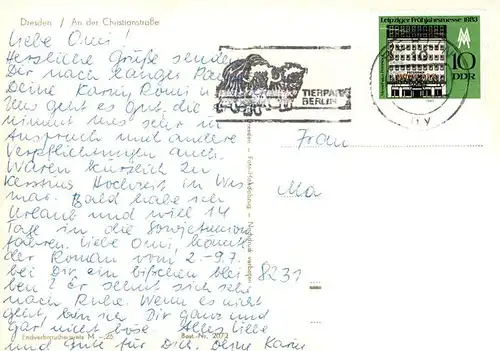 Dresden / An der Christianstraße
Liebe Omi!
Herzliche Grüße senden
Dir nach langer
Deine Karin, Romi
Uns geht es gut, die
nimmt uns sehr in
Anspruch und andere
Verpflichtungen auch.
Waren kürzlich zu
Kerstins Hochzeit in Wis
mar. Bald habe ich
Urlaub und will 14
Tage in die Sowjetunion
fahren. Liebe Omi, könnte
der Roman vom 2.-9.7.
bei Dir ein bißchen blei
ben? Er sehnt sich sehr
nach Ruhe. Wenn es nicht
geht, bin ich Dir ganz und
gar nicht böse. Alles Liebe
und Gute für Dich. Deine Karin
Endverbraucherpreis M -,25 Best.-Nr. 2072
TIERPARK
BERLIN
Leipziger Frühjahrsmesse 1983
10
DDR
Frau
Ma
8231